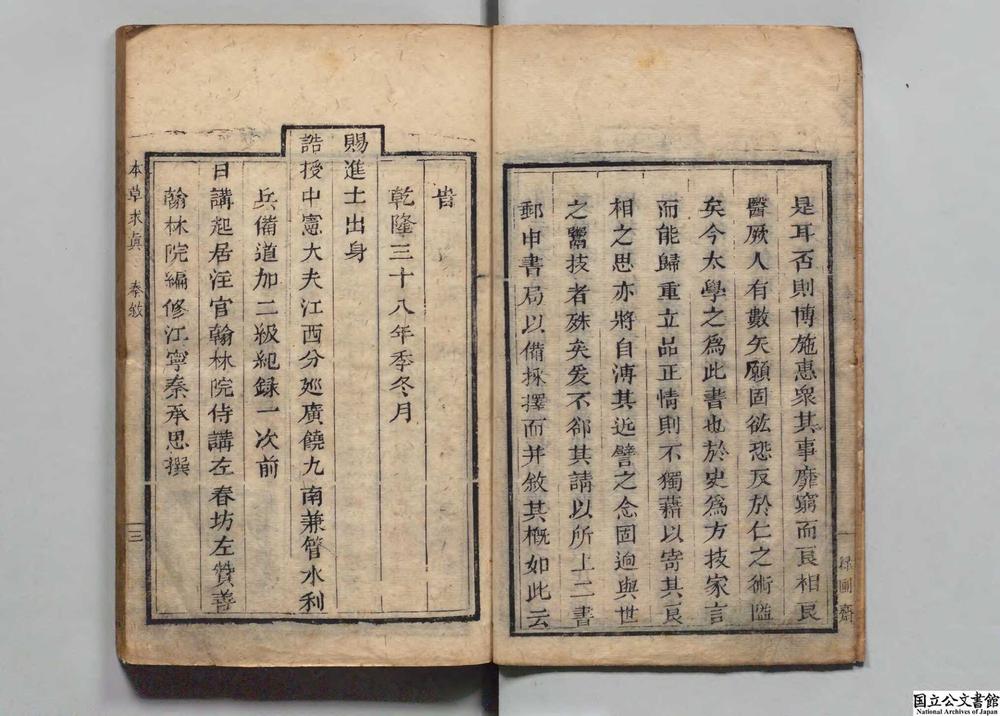 是耳否則博施惠衆其事靡窮而良相良
醫厥人有數矢願固欲恐反於仁之術隘
矣今太學之爲此書也於史爲方技家言
而能歸重立品正情則不獨藉以寄其良
相之思亦將自溥其近譬之念固逈與世
之鬻技者殊矣爰不郤其請以所上二書
郵申書局以備採擇而并敘其概如此云
綠圃齋
旹
乾隆三十八年季冬月
賜進士出身
誥授中憲大夫江西分廵廣饒九南兼管水利
兵備道加二級紀録一次前
日講起居注官翰林院侍講左春坊左贊善
翰林院編修江寧秦承思撰
本草求眞 奉敘 三
国立公文書館
National Archives of Japan